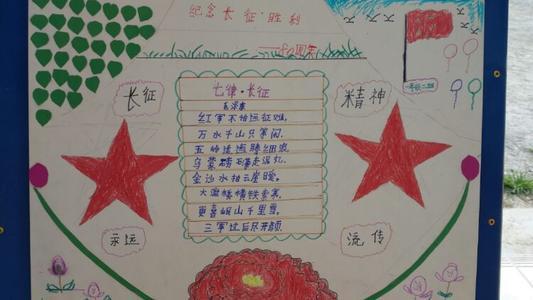 纪念长征·胜利
——80周年
一年级二班
长征
精神
七律·长征
毛泽东
红军不怕远征难,
万水千山只等闲.
五岭逶迤腾细浪,
乌蒙磅礴走泥丸.
金沙水拍云崖暖,
大渡桥横铁索寒.
更喜岷山千里雪,
三军过后尽开颜.
永远
流传